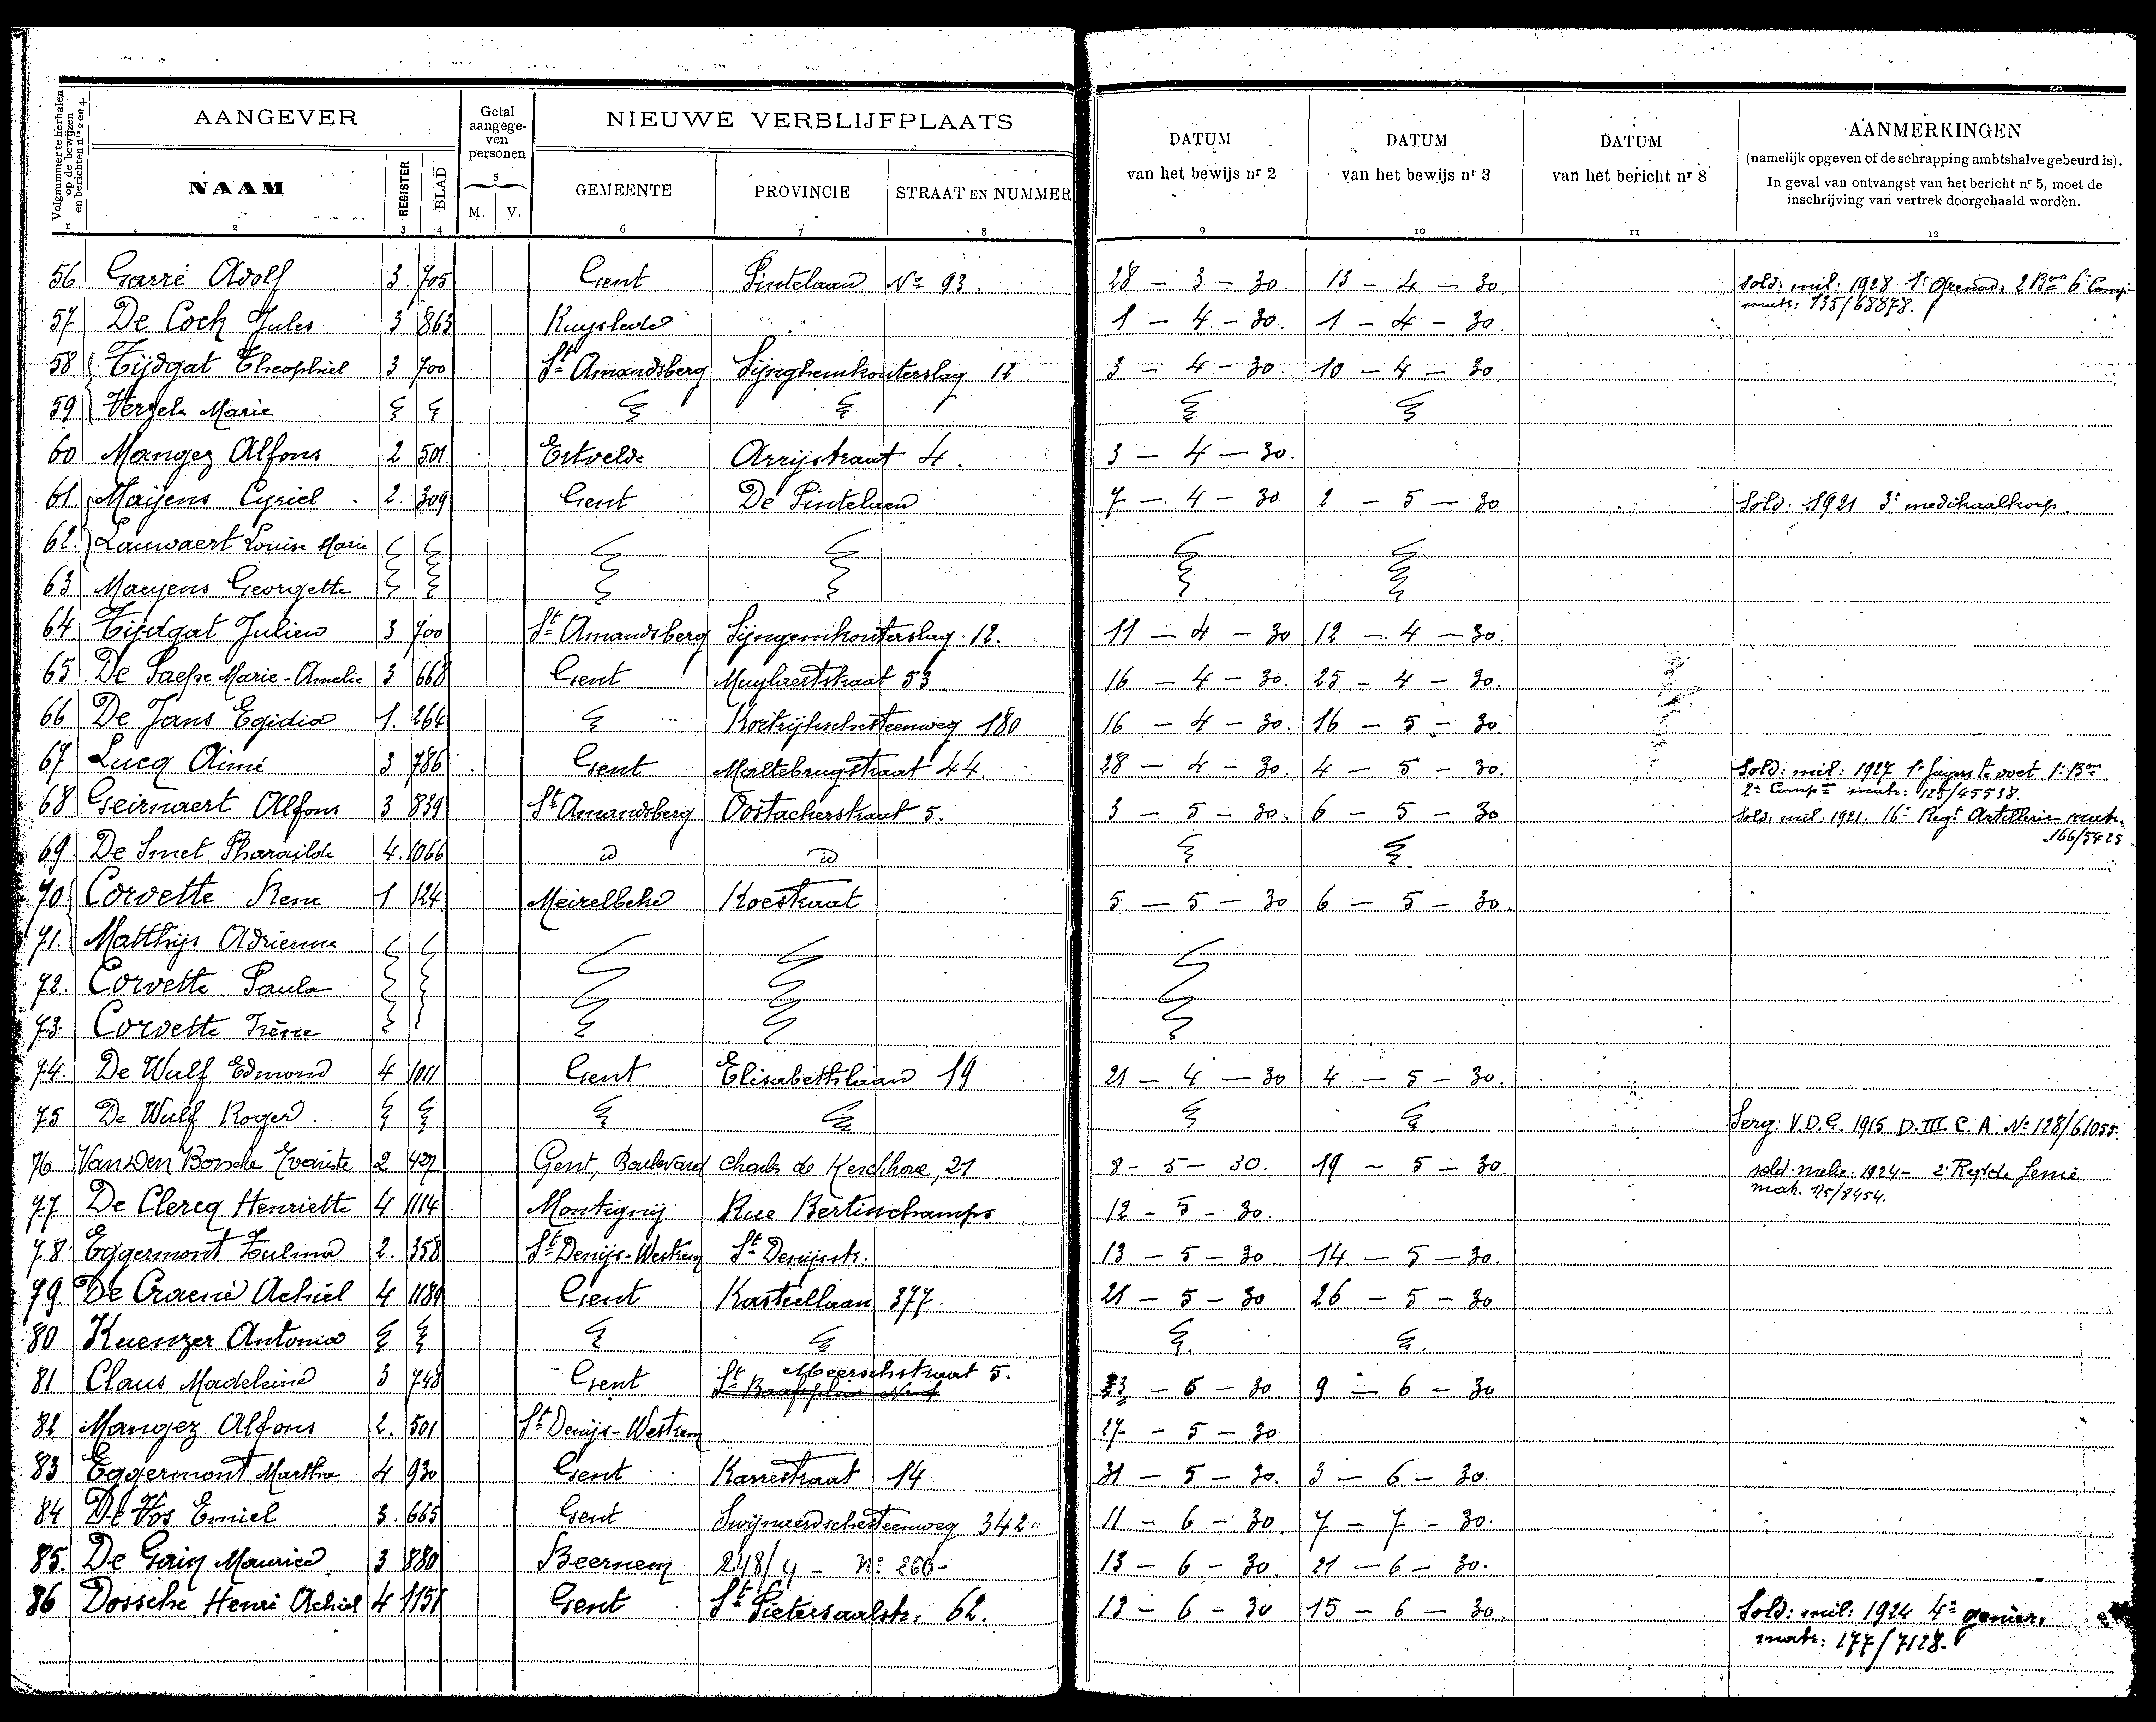 Volgnummer te herhalen op de bewijzen en berichten nrs 2 en 4.
AANGEVER
Getal aangegeven personen
NIEUWE VERBLIJFPLAATS
DATUM van het bewijs nr 2
DATUM van het bewijs nr 3
DATUM van het bericht nr 8
AANMERKINGEN
(namelijk opgeven of de schrapping ambtshalve gebeurd is).
In geval van ontvangst van het bericht nr 5, moet de
inschrijving van vertrek doorgehaald worden.
NAAM REGISTER BLAD 5 M. V. GEMEENTE PROVINCIE STRAAT EN NUMMER
1 2 3 4 6 7 8 9 10 11 12
56 Garré Adolf 3 705 Gent Sintelaan No 93. 28 - 3 - 30. 13 - 4 - 30 Sold: mil: 1928 1e Grenad: 2 Bon 6e Comp:
matr: 135/68878.
57 De Cock Jules 3 863 Ruyslede 1 - 4 - 30. 1 - 4 - 30.
58 Tijdgat Theophiel 3 700 St Amandsberg Sijnghemkouterslag 12 3 - 4 - 30. 10 - 4 - 30.
59 Verzele Marie
60 Mangez Alfons 2 501. Ertvelde Arrijstraat 4. 3 - 4 - 30.
61. Maijens Cyriel 2. 309 Gent De Pintelaan 7 - 4 - 30 2 - 5 - 30 Sold. 1921 3e medikaalkorps.
62. Lauwaert Louise Marie
63 Maeyens Georgette
64. Tijdgat Julien 3 700 St Amandsberg Sijngemkouterslag 12. 11 - 4 - 30 12 - 4 - 30.
65 De Paepe Marie-Amelie 3 668 Gent Muylaertstraat 53 16 - 4 - 30. 25 - 4 - 30.
66 De Jans Egidia 1. 264 Kortrijkschesteenweg 180 16 - 4 - 30. 16 - 5 - 30
67 Lucq Aimé 3 786 Gent Maltebrugstraat 44. 28 - 4 - 30. 4 - 5 - 30. Sold: mil: 1927 1e Jagers te voet 1e Bon
2e Compie matr: 125/45538.
68 Geirnaert Alfons 3 839 St Amandsberg Oostackerstraat 5. 3 - 5 - 30. 6 - 5 - 30 Sold. mil. 1921. 16e Regt Artillerie matr.
166/5425
69. De Smet Pharaïlde 4. 1066 id id
70 Corvette Rene 1 124 Meirelbeke Koestraat 5 - 5 - 30 6 - 5 - 30.
71. Matthijs Adrienne
72. Corvette Paula
73. Corvette Irène
74. De Wulf Edmond 4 1011 Gent Elisabethlaan 19 21 - 4 - 30 4 - 5 - 30.
75 De Wulf Roger. Serg: V.D.G. 1915 D. III C. A. No 128/61055.
76 Van Den Bossche Evariste 2 427 Gent, Boulevard Charles de Kerchove, 21 8 - 5 - 30. 19 - 5 - 30 sold. melie. 1924 - 2e Regt de Genie
mat. 175/8454.
77 De Clercq Henriette 4 1114 Montignij Rue Bertinchamps 12 - 5 - 30.
78 Eggermont Zulma 2. 358 St Denijs-Westrem St Denijsstr. 13 - 5 - 30 14 - 5 - 30.
79 De Craene Achiel 4 1189 Gent Kasteellaan 377. 21 - 5 - 30 26 - 5 - 30
80 Kuenzer Antonia
81 Claus Madeleine 3 748 Gent Meerschstraat 5. 23 - 5 - 30 9 - 6 - 30
82 Mangez Alfons 2. 501 St Denijs-Westrem 27 - 5 - 30
83 Eggermont Martha 4 930 Gent Karrestraat 14 31 - 5 - 30. 3 - 6 - 30.
84 De Vos Emiel 3. 665 Gent Swijnaerdschesteenweg 342 11 - 6 - 30. 7 - 7 - 30.
85. Maurice 3 880 Beernem 248/4 - No 260- 13 - 6 - 30. 21 - 6 - 30.
86 Dossche Henri Achiel 4 1151 Gent St Pietersaalstr. 62. 13 - 6 - 30 15 - 6 - 30. Sold: mil: 1924 4e genie.
matr: 177/7128.